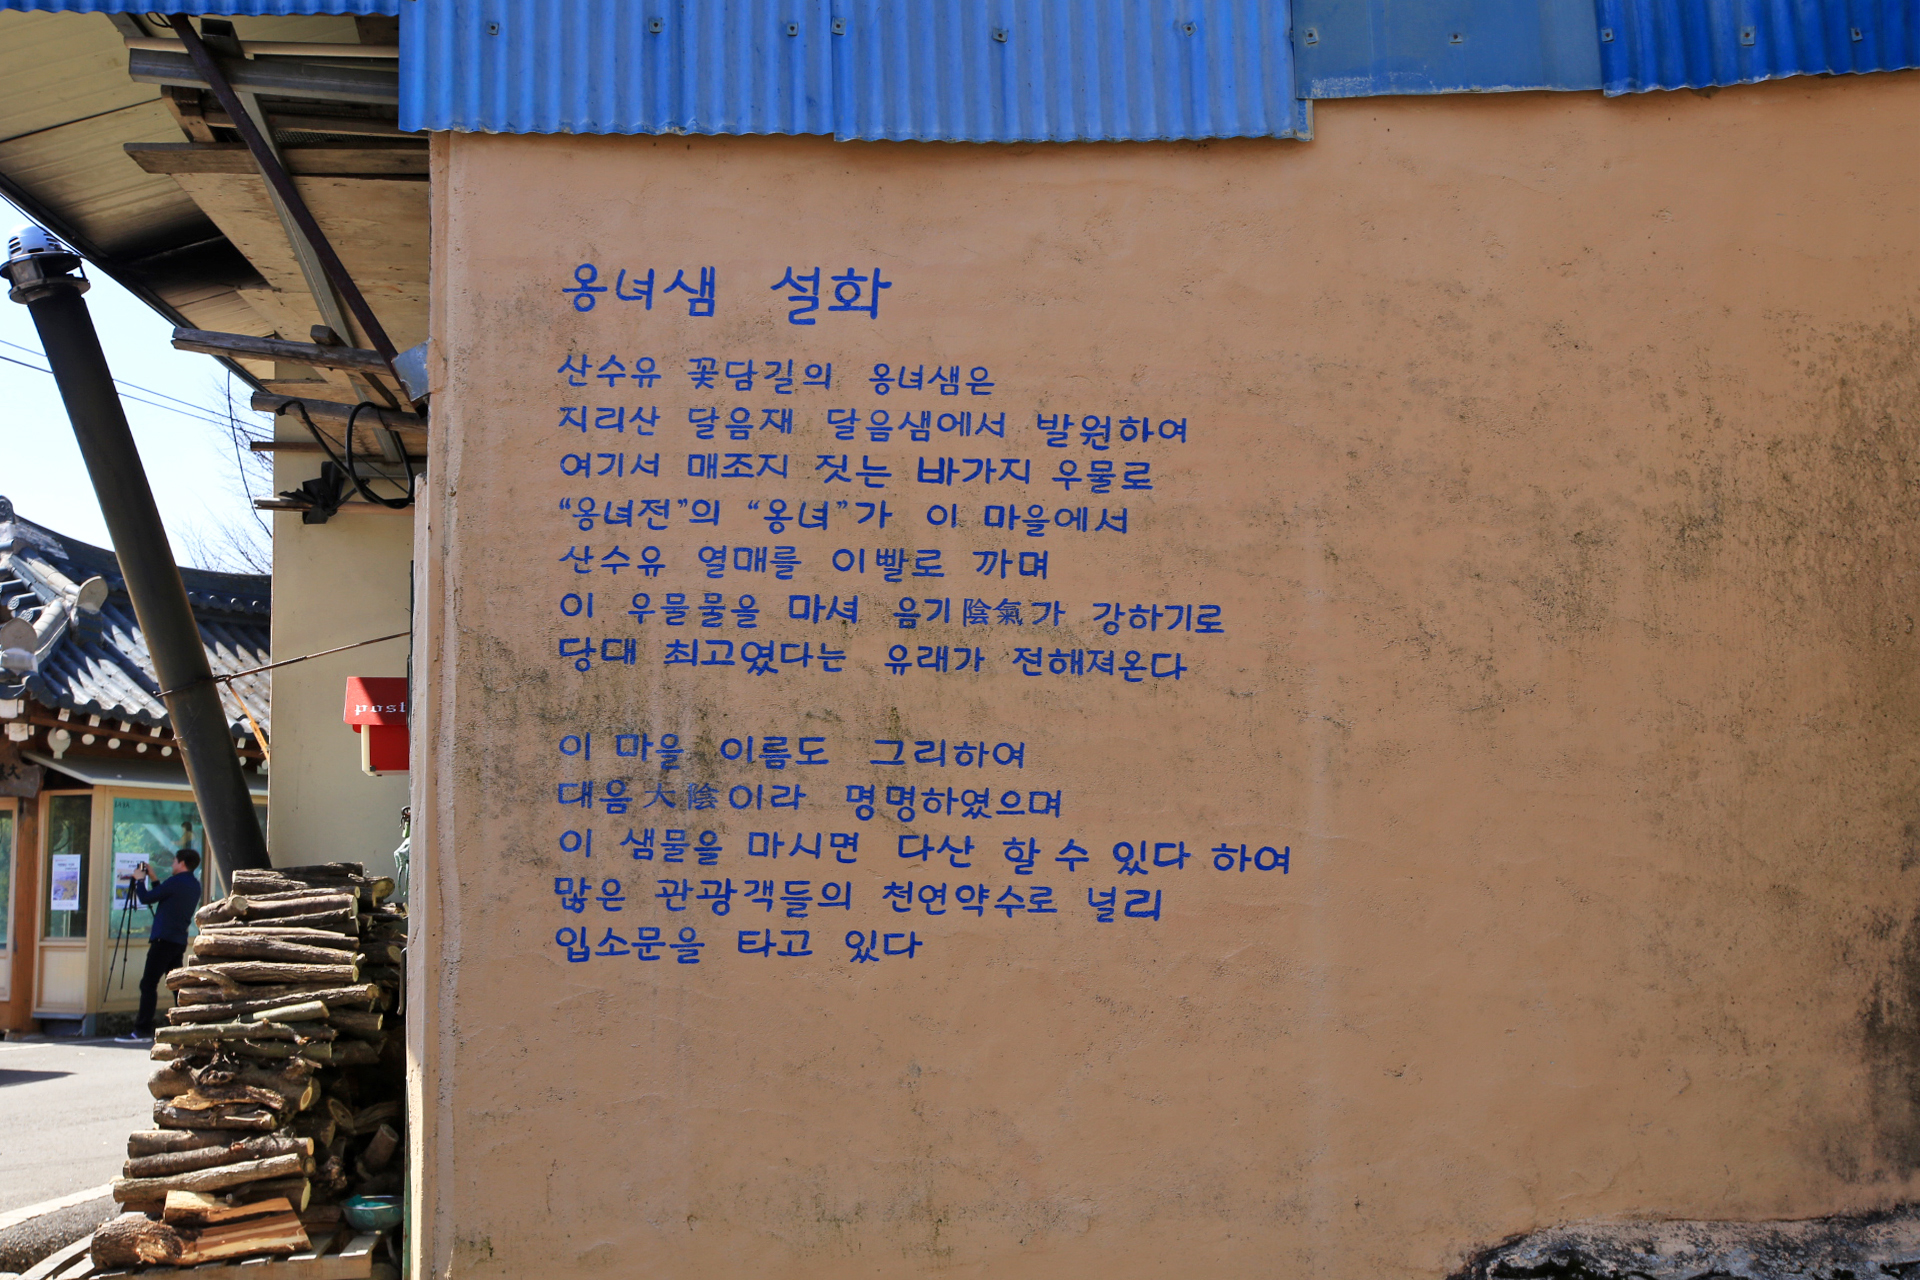 옹녀샘 설화
산수유 꽃담길의 옹녀샘은
지리산 달음재 달음샘에서 발원하여
여기서 매조지 짓는 바가지 우물로
“옹녀전”의 “옹녀”가 이 마을에서
산수유 열매를 이빨로 까며
이 우물물을 마셔 음기陰氣가 강하기로
당대 최고였다는 유래가 젼해져온다
이 마을 이름도 그리하여
대음大陰이라 명명하였으며
이 샘물을 마시면 다산 할 수 있다 하여
많은 관광객들의 천연약수로 널리
입소문을 타고 있다
post